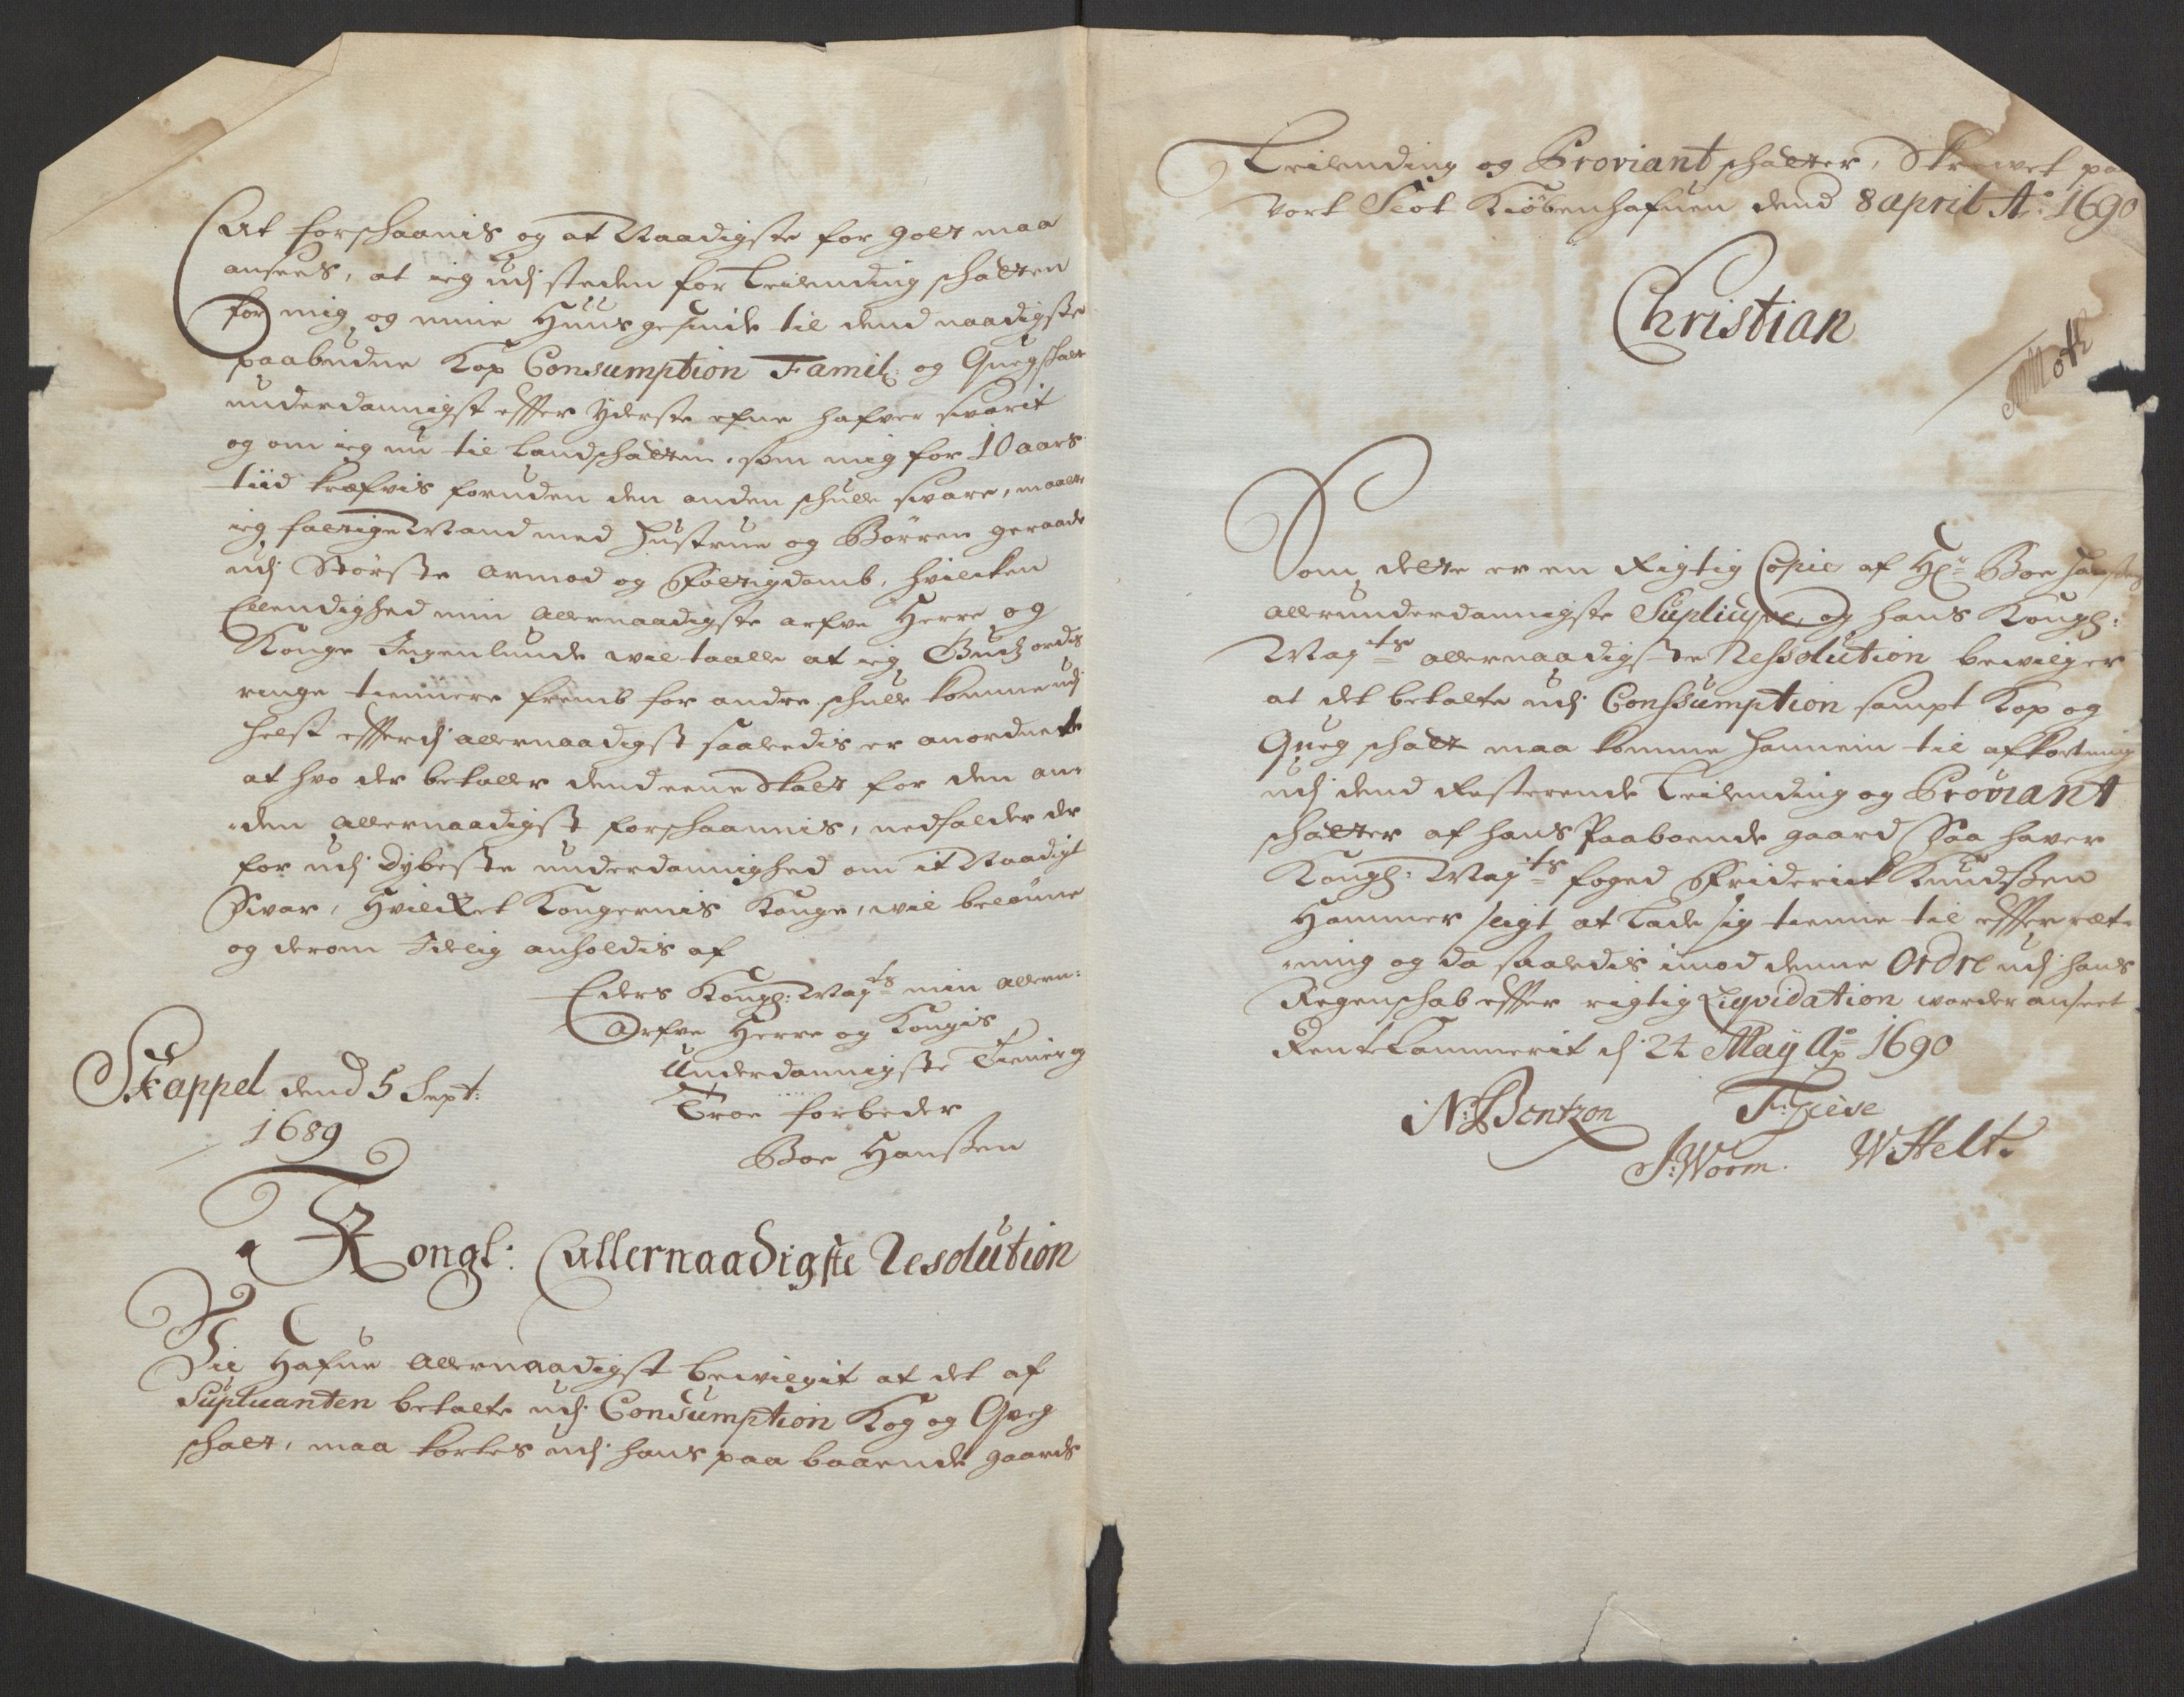 At forschaanis og at Naadigste for golt maa
ansees, at ieg udj steden for Leilending schatten
for mig og mine Huusgesinde til dend naadigste
paabudne Kop Consumption Famil: og Quegschatt
underdannigst effter yderste efne hafver svarit
og om ieg nu til Landschatten, som mig for 10 aars
tiid kræfvis foruden den anden schulle svare, maatte
ieg fattige Mand med Hustrue og Børren geraade
udj Største Armod og Fattigdomb, hvilcken
Ellendighed min Allernaadigste arfve Herre og
Konge Ingenlunde vil taalle at ieg Gudz ordis
ringe tiennere fremb for andre schulle komme udj
helst efferdj allernaadigst saaledis er anordnett
at hvo der betaller dend eene Skatt for den an-
den Allernaadigst forschaannis, nedfalder der
for udj dybeste underdannighed om it Naadigt
Svar, Hvilcket Kongernis Konge, vil belønne
og derom Idelig anholdis af
Eders Kongl: May:ts min allern:
Arfve Herre og Kongis
Underdannigste Tiener og
Troe forbeder
Boe Hanssen
Skappel dend 5 Sept:
1689
Kongl: Allernaadigste Resolution
Vii Hafue Allernaadigst bevilgit at det af
Suplicanten betalte udj Consumption Kog og Qveg
schatt, maa kortes udj hans paa boaende gaards
Leilending og Proviant schatter, Skrevet paa
Vort Slot Kiøbenhafuen dend 8 april Ao: 1690
Christian
Moth
Som dette er en Rigtig Copie af Hr: Boe Hanssens
allerunderdannigste Suplicqve, og hans Kongl:
May:ts allernaadigste Ressolution bevilger
at det betalte udj Conssumption sampt Kop og
Queg schatt maa komme hannem til afkortning
udj dend Resterende Leilending og Proviant
schatter af hans Paaboende gaard Saa haver
Kongl: May:ts foged Friderick Knudssen
Hammer sligt at lade sig tienne til effterræt-
ning og da saaledis imod denne Ordre udj hans
Regenschab effter rigtig Liqvidation vorder anseet
Rentekammerit d: 24 Maÿ Ao 1690
N: Bentzon
J: Worm. W Helt.